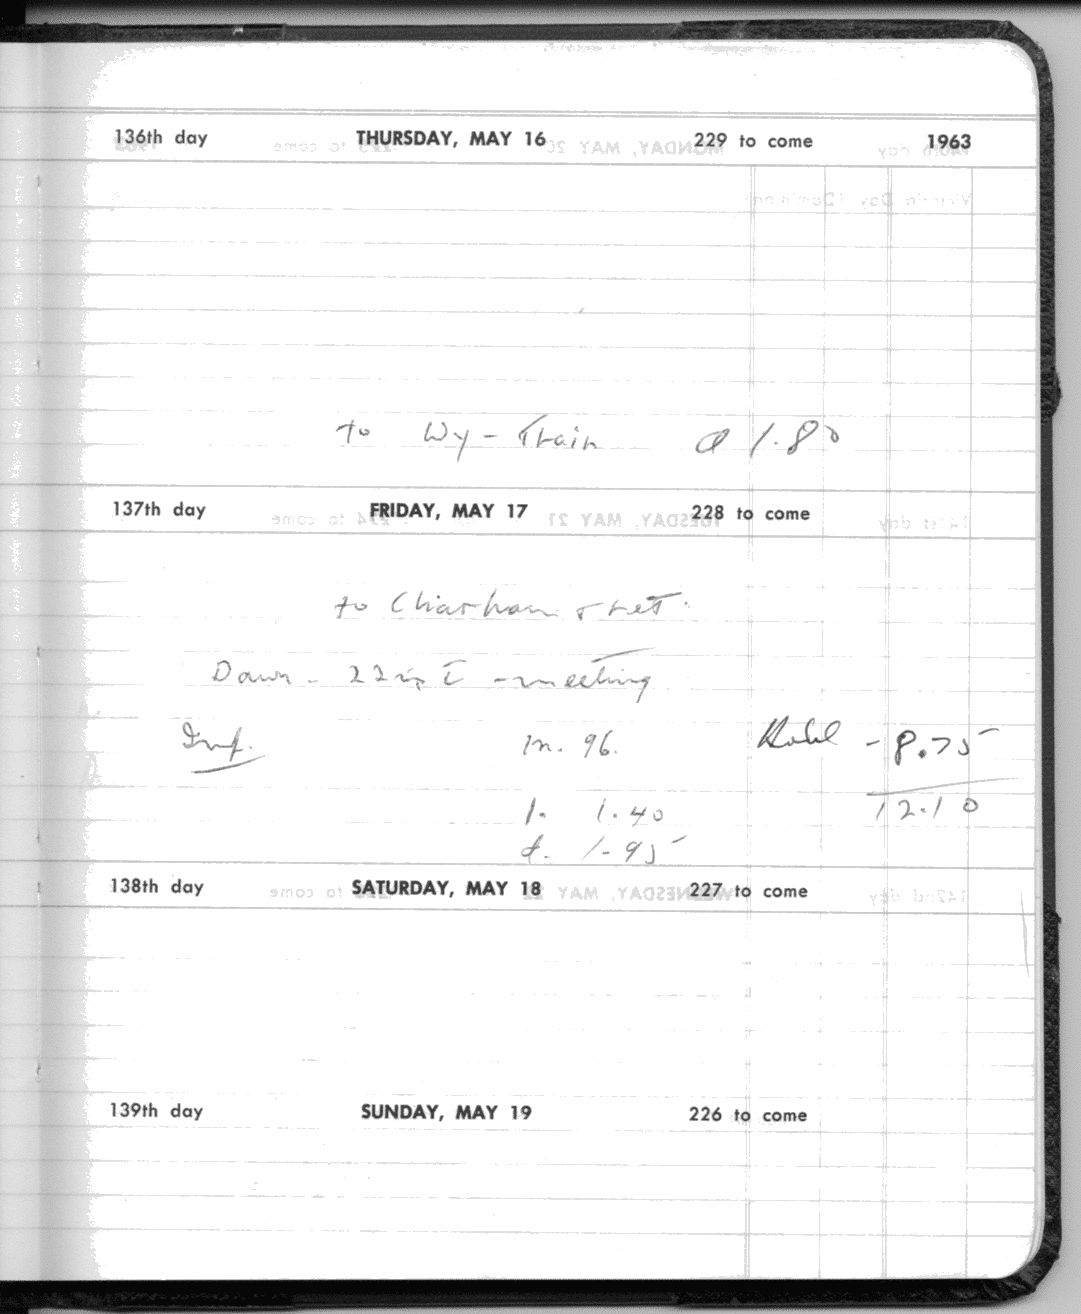 136th day THURSDAY, MAY 16 229 to come 1963
to Wy - Train @ 1.80
137th day FRIDAY, MAY 17 228 to come
to Chatham & ret.
Dawn - meeting
Inf. m. 96. Hotel - 8.75
l. 1.40 12.10
d. 1-95
138th day SATURDAY, MAY 18 227 to come
139th day SUNDAY, MAY 19 226 to come